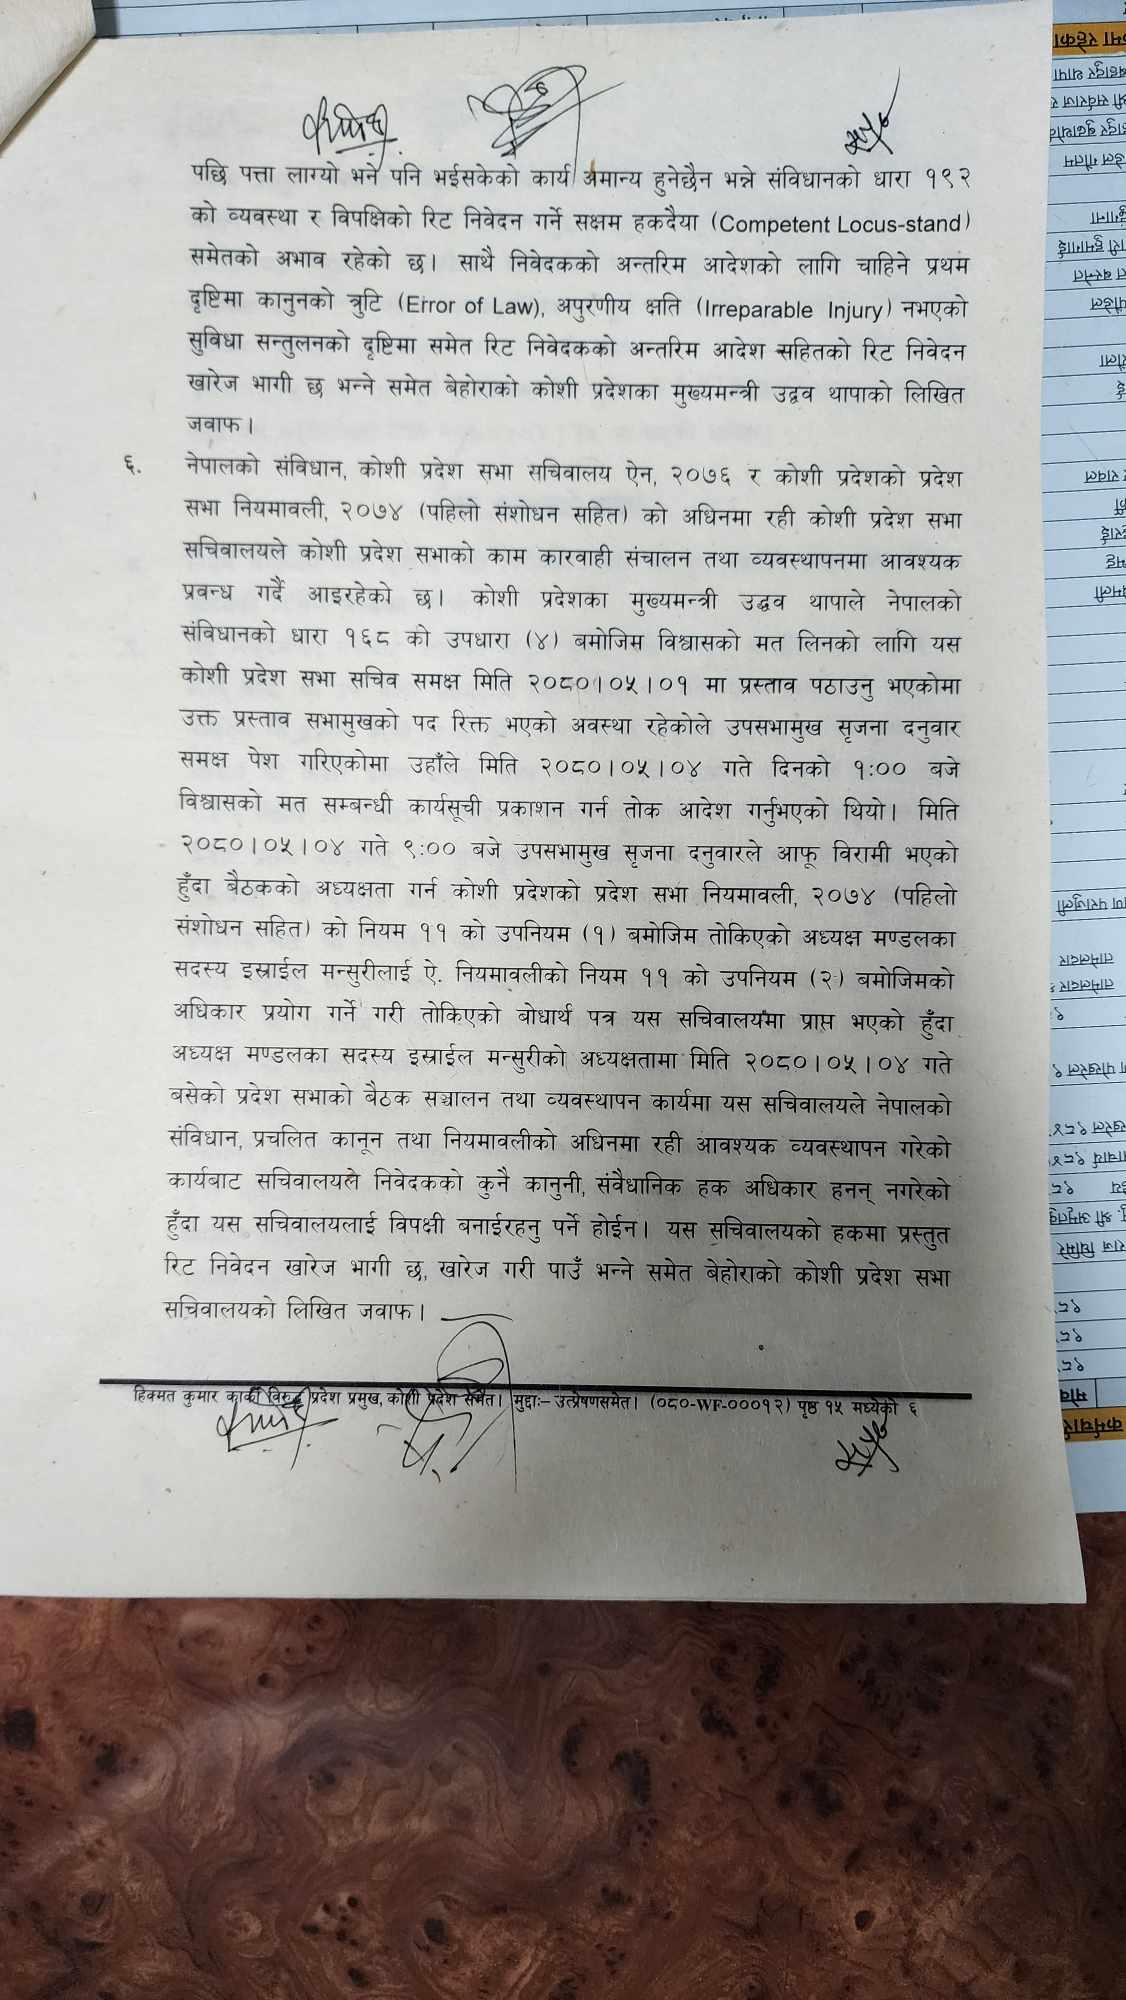 पछि पत्ता लाग्यो भने पनि भईसकेको कार्य अमान्य हुनेछैन भन्ने संविधानको धारा १९२
को व्यवस्था र विपक्षिको रिट निवेदन गर्ने सक्षम हकदैया (Competent Locus-stand)
समेतको अभाव रहेको छ। साथै निवेदकको अन्तरिम आदेशको लागि चाहिने प्रथम
दृष्टिमा कानुनको त्रुटि (Error of Law), अपुरणीय क्षति (Irreparable Injury) नभएको
सुविधा सन्तुलनको दृष्टिमा समेत रिट निवेदकको अन्तरिम आदेश सहितको रिट निवेदन
खारेज भागी छ भन्ने समेत बेहोराको कोशी प्रदेशका मुख्यमन्त्री उद्वव थापाको लिखित
जवाफ।
६. नेपालको संविधान, कोशी प्रदेश सभा सचिवालय ऐन, २०७६ र कोशी प्रदेशको प्रदेश
सभा नियमावली, २०७४ (पहिलो संशोधन सहित) को अधिनमा रही कोशी प्रदेश सभा
सचिवालयले कोशी प्रदेश सभाको काम कारवाही संचालन तथा व्यवस्थापनमा आवश्यक
प्रवन्ध गर्दै आइरहेको छ। कोशी प्रदेशका मुख्यमन्त्री उद्धव थापाले नेपालको
संविधानको धारा १६८ को उपधारा (४) बमोजिम विश्वासको मत लिनको लागि यस
कोशी प्रदेश सभा सचिव समक्ष मिति २०८०।०५।०१ मा प्रस्ताव पठाउनु भएकोमा
उक्त प्रस्ताव सभामुखको पद रिक्त भएको अवस्था रहेकोले उपसभामुख सृजना दनुवार
समक्ष पेश गरिएकोमा उहाँले मिति २०८०।०५।०४ गते दिनको १:०० बजे
विश्वासको मत सम्बन्धी कार्यसूची प्रकाशन गर्न तोक आदेश गर्नुभएको थियो। मिति
२०८०।०५।०४ गते ९:०० बजे उपसभामुख सृजना दनुवारले आफू विरामी भएको
हुँदा बैठकको अध्यक्षता गर्न कोशी प्रदेशको प्रदेश सभा नियमावली, २०७४ (पहिलो
संशोधन सहित) को नियम ११ को उपनियम (१) बमोजिम तोकिएको अध्यक्ष मण्डलका
सदस्य इस्राईल मन्सुरीलाई ऐ. नियमावलीको नियम ११ को उपनियम (२) बमोजिमको
अधिकार प्रयोग गर्ने गरी तोकिएको बोधार्थ पत्र यस सचिवालयमा प्राप्त भएको हुँदा
अध्यक्ष मण्डलका सदस्य इस्राईल मन्सुरीको अध्यक्षतामा मिति २०८०।०५।०४ गते
बसेको प्रदेश सभाको बैठक सञ्चालन तथा व्यवस्थापन कार्यमा यस सचिवालयले नेपालको
संविधान, प्रचलित कानून तथा नियमावलीको अधिनमा रही आवश्यक व्यवस्थापन गरेको
कार्यबाट सचिवालयले निवेदकको कुनै कानुनी, संवैधानिक हक अधिकार हनन् नगरेको
हुँदा यस सचिवालयलाई विपक्षी बनाईरहनु पर्ने होईन। यस सचिवालयको हकमा प्रस्तुत
रिट निवेदन खारेज भागी छ, खारेज गरी पाउँ भन्ने समेत बेहोराको कोशी प्रदेश सभा
सचिवालयको लिखित जवाफ।
हिक्मत कुमार कार्की विरुद्ध प्रदेश प्रमुख, कोशी प्रदेश समेत। मुद्दाः– उत्प्रेषणसमेत। (०८०-WF-०००१२) पृष्ठ १५ मध्येको ६